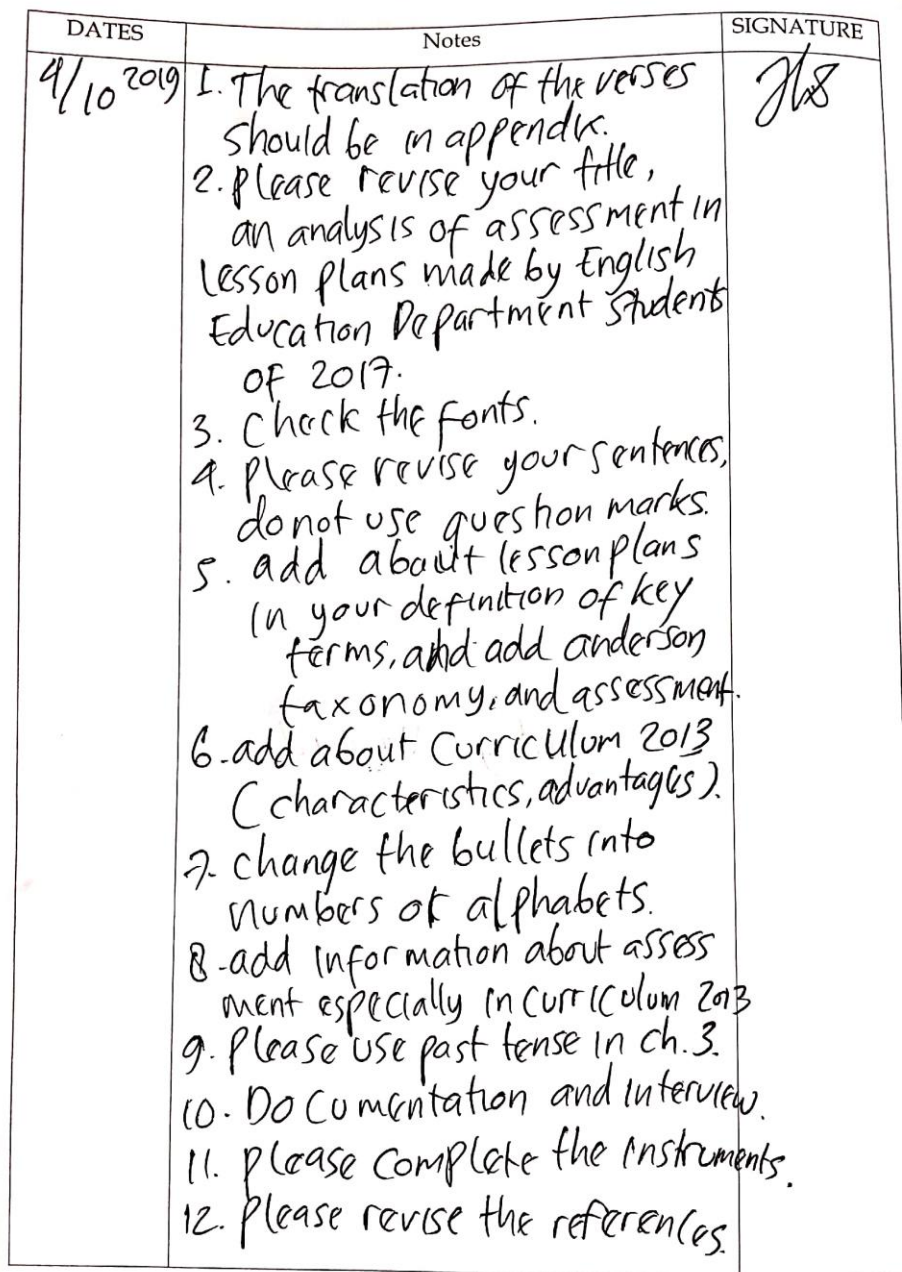 DATES Notes SIGNATURE
4/10 2019 1. The translation of the verses
should be in appendix.
2. Please revise your title,
an analysis of assessment in
lesson plans made by English
Education Department students
of 2017.
3. Check the fonts.
4. Please revise your sentences,
do not use question marks.
5. add about lesson plans
in your definition of key
terms, and add anderson
taxonomy, and assessment.
6. add about Curriculum 2013
(characteristics, advantages).
7. change the bullets into
numbers or alphabets.
8. add information about assess
ment especially in curriculum 2013
9. Please use past tense in ch. 3.
10. Documentation and interview.
11. please complete the instruments.
12. Please revise the references.